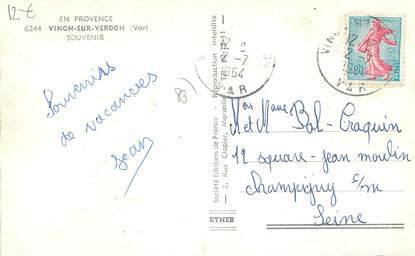 12 €
EN PROVENCE
6244 VINON-SUR-VERDON (Var)
SOUVENIR
Souvenirs
de vacances
Jean
83
Société Editions de France - Reproduction interdite
2, Rue Clapier, Marseille
RYNER
2 -7
1964
VAR
VINON
VAR
0,20
Mr et Mme Bal-Craquin
12 square Jean moulin
Champigny s/m
Seine